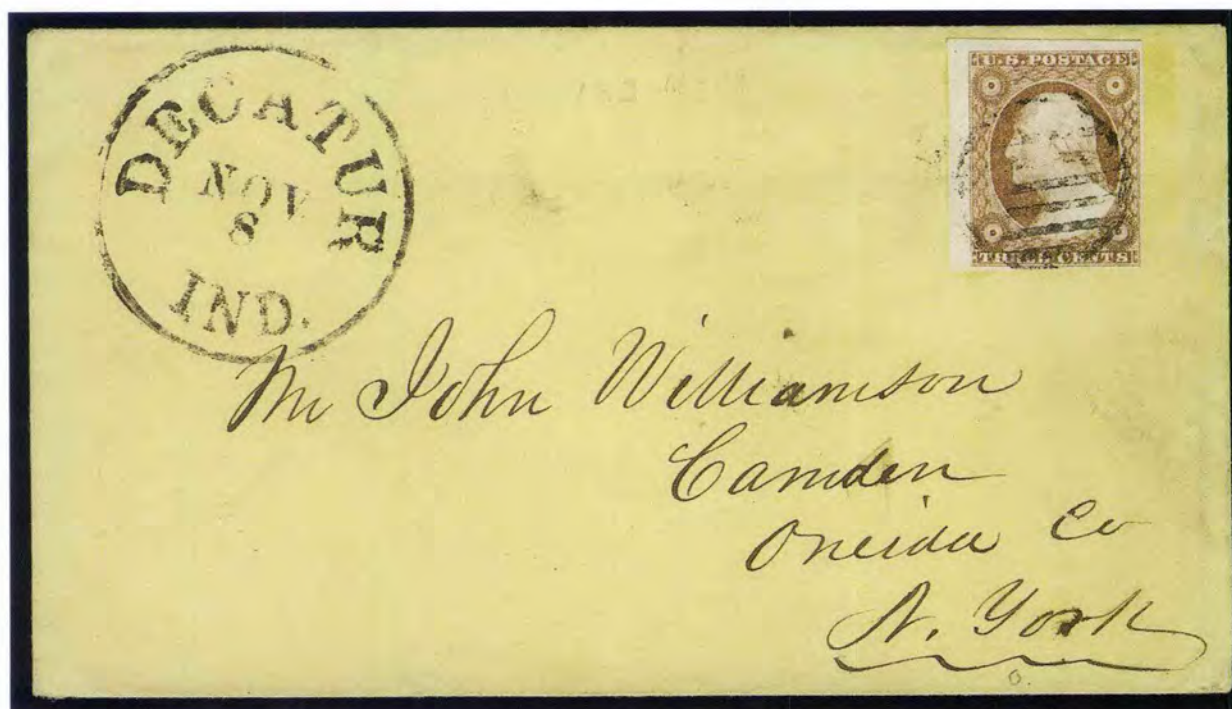 DECATUR
NOV
8
IND.
U.S. POSTAGE
THREE CENTS
Mr John Williamson
Camden
Oneida Co
N. York